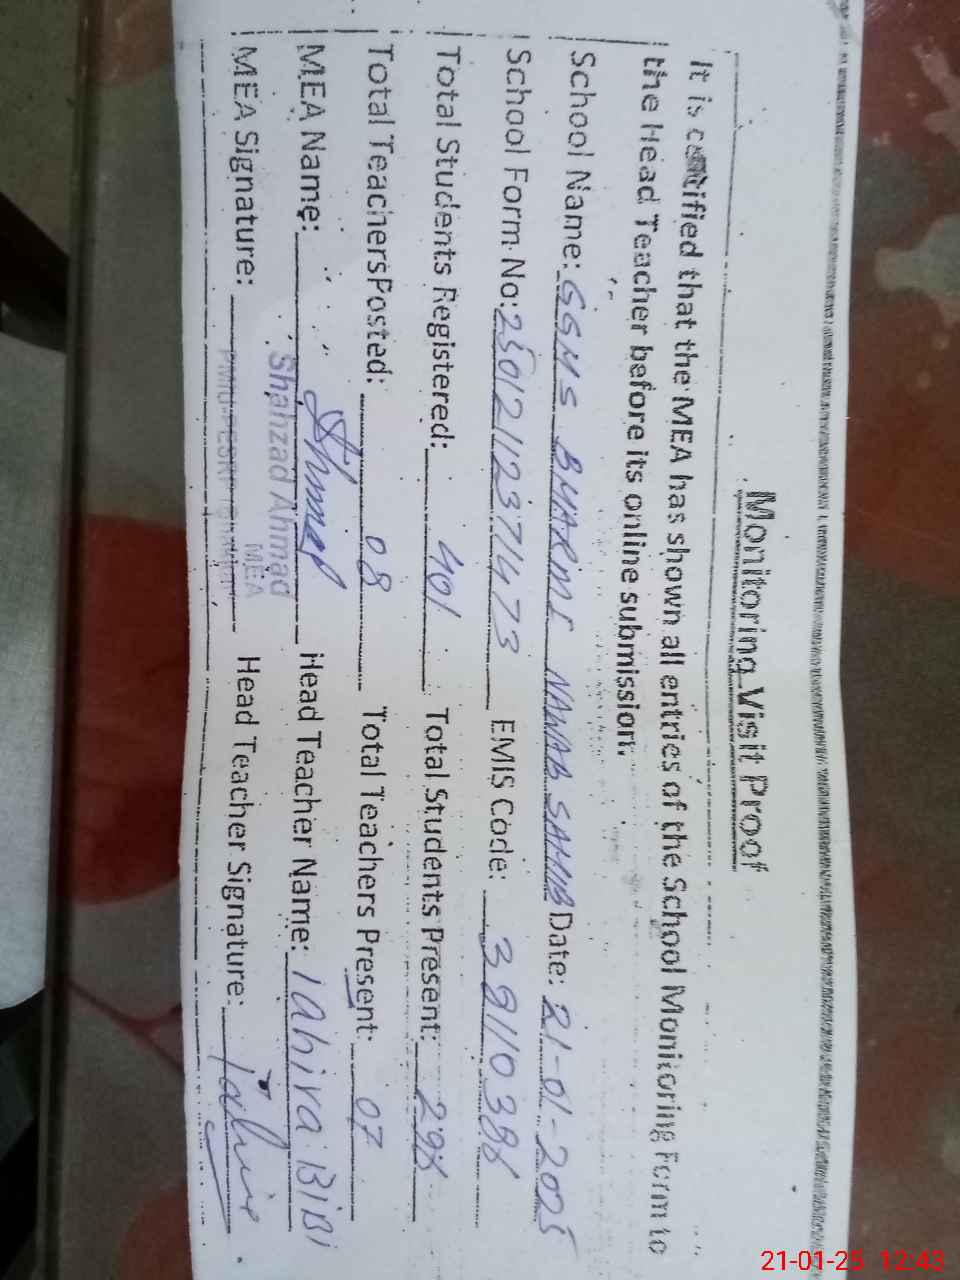 Monitoring Visit Proof
It is certified that the MEA has shown all entries of the School Monitoring Form to
the Head Teacher before its online submission.
School Name: GGMS BHARMI NAWAB SAHIB Date: 21-01-2025
School Form No: 25012112371473 EMIS Code: 39110388
Total Students Registered: 401 Total Students Present: 298
Total TeachersPosted: 08 Total Teachers Present: 07
MEA Name: Ahmad Head Teacher Name: Tahira BiBi
Shahzad Ahmad
MEA
MEA Signature: Head Teacher Signature: Tahira
21-01-25 12:43